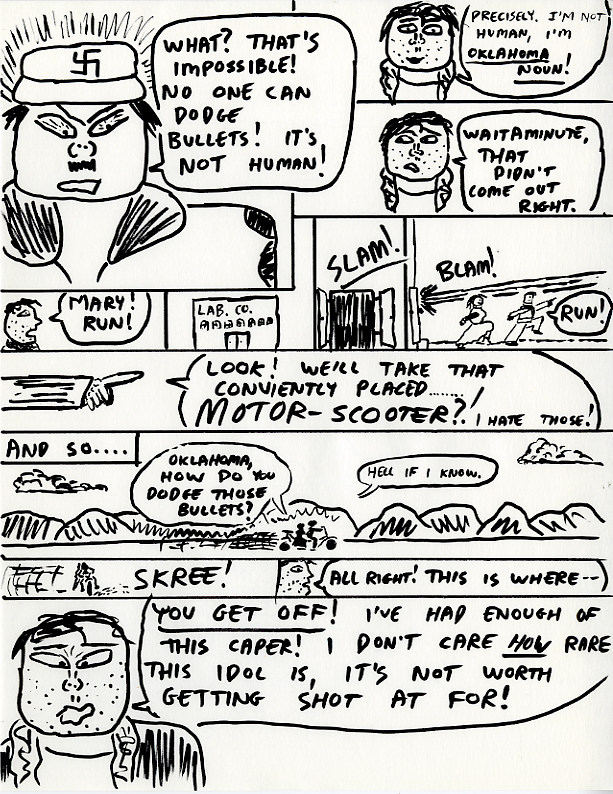 WHAT? THAT'S
IMPOSSIBLE!
NO ONE CAN
DODGE
BULLETS! IT'S
NOT HUMAN!
PRECISELY. I'M NOT
HUMAN, I'M
OKLAHOMA
NOUN!
WAITAMINUTE,
THAT
DIDN'T
COME OUT
RIGHT.
MARY!
RUN!
LAB. CO.
SLAM!
BLAM!
RUN!
LOOK! WE'LL TAKE THAT
CONVIENTLY PLACED.......
MOTOR-SCOOTER?! I HATE THOSE!
AND SO....
OKLAHOMA,
HOW DO YOU
DODGE THOSE
BULLETS?
HELL IF I KNOW.
SKREE!
ALL RIGHT! THIS IS WHERE--
YOU GET OFF! I'VE HAD ENOUGH OF
THIS CAPER! I DON'T CARE HOW RARE
THIS IDOL IS, IT'S NOT WORTH
GETTING SHOT AT FOR!